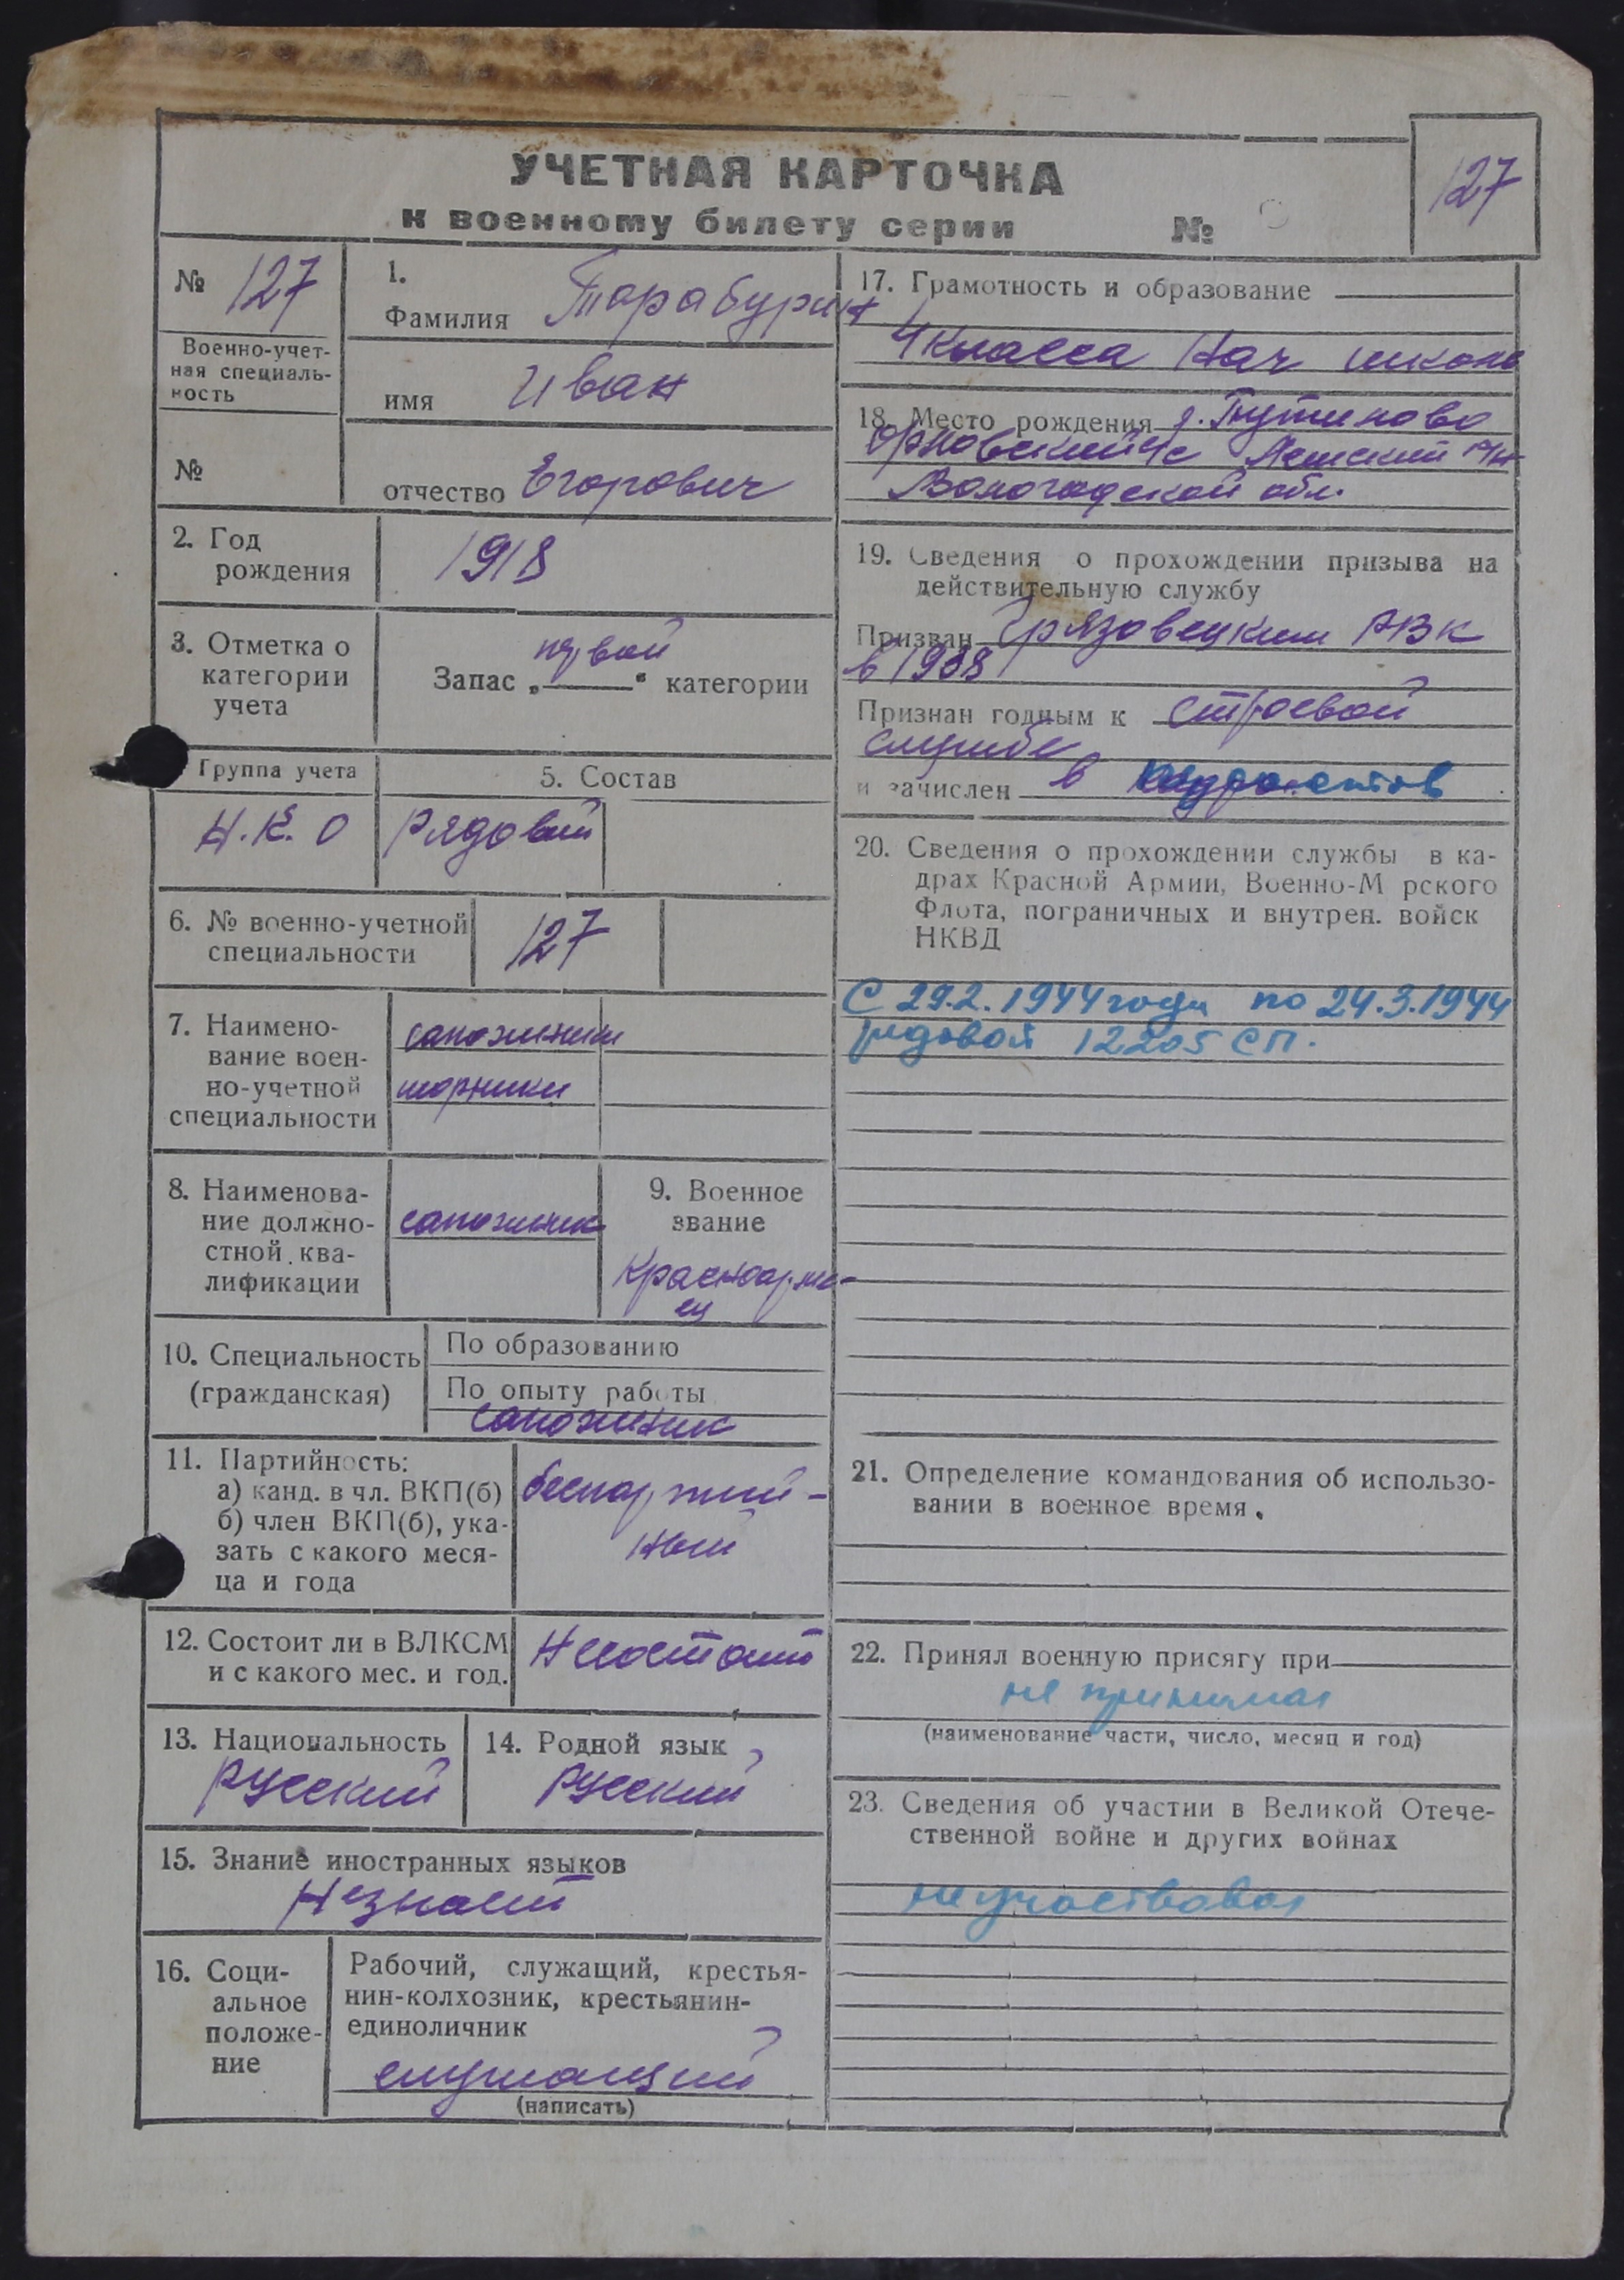 УЧЕТНАЯ КАРТОЧКА
к военному билету серии №
127
№ 127
Военно-учет-
ная специаль-
ность
№
1.
Фамилия Тарабурин
имя Иван
отчество Егорович
2. Год
рождения
1918
3. Отметка о
категории
учета
первой
Запас „ “ категории
Группа учета
Н.К.О
5. Состав
Рядовой
6. № военно-учетной
специальности
127
7. Наимено-
вание воен-
но-учетной
специальности
сапожники
шорники
8. Наименова-
ние должно-
стной ква-
лификации
сапожник
9. Военное
звание
Красноарме-
ец
10. Специальность
(гражданская)
По образованию
По опыту работы
сапожник
11. Партийность:
а) канд. в чл. ВКП(б)
б) член ВКП(б), ука-
зать с какого меся-
ца и года
беспартий-
ный
12. Состоит ли в ВЛКСМ
и с какого мес. и год.
Несостоит
13. Национальность
Русский
14. Родной язык
Русский
15. Знание иностранных языков
Незнает
16. Соци-
альное
положе-
ние
Рабочий, служащий, крестья-
нин-колхозник, крестьянин-
единоличник
служащий
(написать)
17. Грамотность и образование
4 класса Нач школы
18. Место рождения д.
с/с р/н
Вологодской обл.
19. Сведения о прохождении призыва на
действительную службу
Призван Грязовецким РВК
в 1938
Признан годным к строевой
службе
и зачислен в
20. Сведения о прохождении службы в ка-
драх Красной Армии, Военно-М рского
Флота, пограничных и внутрен. войск
НКВД
С 29.2.1944 года по 24.3.1944
рядовой 12205 СП.
21. Определение командования об использо-
вании в военное время.
22. Принял военную присягу при
не принимал
(наименование части, число, месяц и год)
23. Сведения об участии в Великой Отече-
ственной войне и других войнах
не участвовал